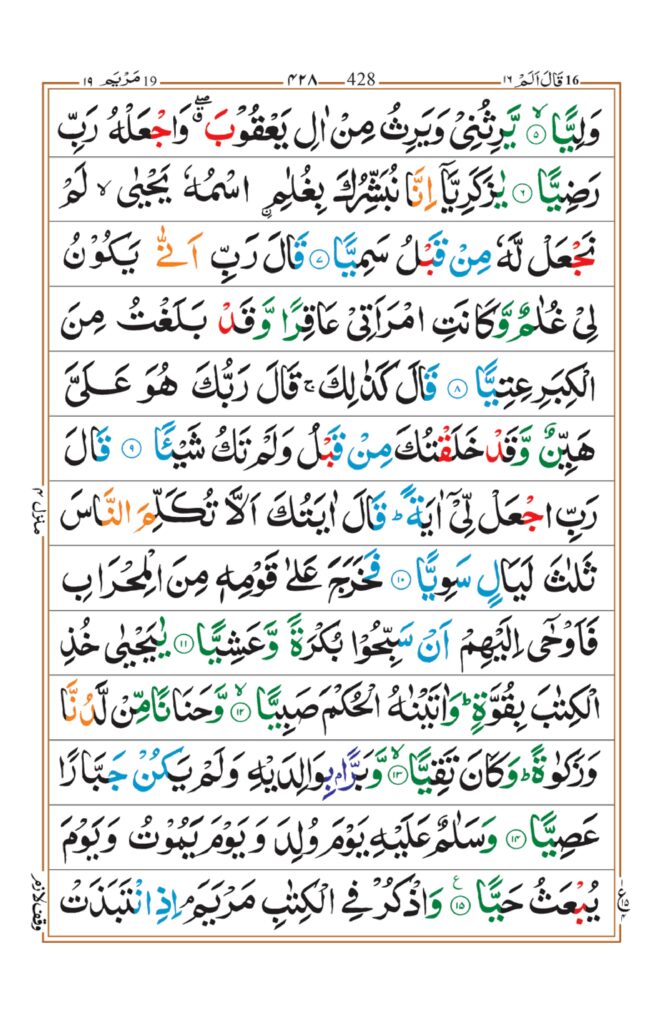 19 مَرْيَم ١٩
428 ٤٢٨
16 قَالَ اَلَمْ ١٦
وَلِيًّا ۙ﴿۵﴾ يَّرِثُنِىْ وَيَرِثُ مِنْ اٰلِ يَعْقُوْبَ ۖۗ وَاجْعَلْهُ رَبِّ
رَضِيًّا ﴿۶﴾ يٰزَكَرِيَّاۤ اِنَّا نُبَشِّرُكَ بِغُلٰمِ ۨاسْمُهٗ يَحْيٰى ۙ لَمْ
نَجْعَلْ لَّهٗ مِنْ قَبْلُ سَمِيًّا ﴿۷﴾ قَالَ رَبِّ اَنّٰى يَكُوْنُ
لِىْ غُلٰمٌ وَّكَانَتِ امْرَاَتِىْ عَاقِرًا وَّقَدْ بَلَغْتُ مِنَ
الْكِبَرِ عِتِيًّا ﴿۸﴾ قَالَ كَذٰلِكَ ۚ قَالَ رَبُّكَ هُوَ عَلَىَّ
هَيِّنٌ وَّقَدْ خَلَقْتُكَ مِنْ قَبْلُ وَلَمْ تَكُ شَيْـًٔا ﴿۹﴾ قَالَ
رَبِّ اجْعَلْ لِّىْۤ اٰيَةً ؕ قَالَ اٰيَتُكَ اَلَّا تُكَلِّمَ النَّاسَ
ثَلٰثَ لَيَالٍ سَوِيًّا ﴿۱۰﴾ فَخَرَجَ عَلٰى قَوْمِهٖ مِنَ الْمِحْرَابِ
فَاَوْحٰۤى اِلَيْهِمْ اَنْ سَبِّحُوْا بُكْرَةً وَّعَشِيًّا ﴿۱۱﴾ يٰيَحْيٰى خُذِ
الْكِتٰبَ بِقُوَّةٍ ؕ وَاٰتَيْنٰهُ الْحُكْمَ صَبِيًّا ۙ﴿۱۲﴾ وَّحَنَانًا مِّنْ لَّدُنَّا
وَزَكٰوةً ؕ وَكَانَ تَقِيًّا ۙ﴿۱۳﴾ وَّبَرًّۢا بِوَالِدَيْهِ وَلَمْ يَكُنْ جَبَّارًا
عَصِيًّا ﴿۱۴﴾ وَسَلٰمٌ عَلَيْهِ يَوْمَ وُلِدَ وَيَوْمَ يَمُوْتُ وَيَوْمَ
يُبْعَثُ حَيًّا ﴿۱۵﴾ ع وَاذْكُرْ فِى الْكِتٰبِ مَرْيَمَ ۘ اِذِ انْتَبَذَتْ
منزل ۴
وقف لازم